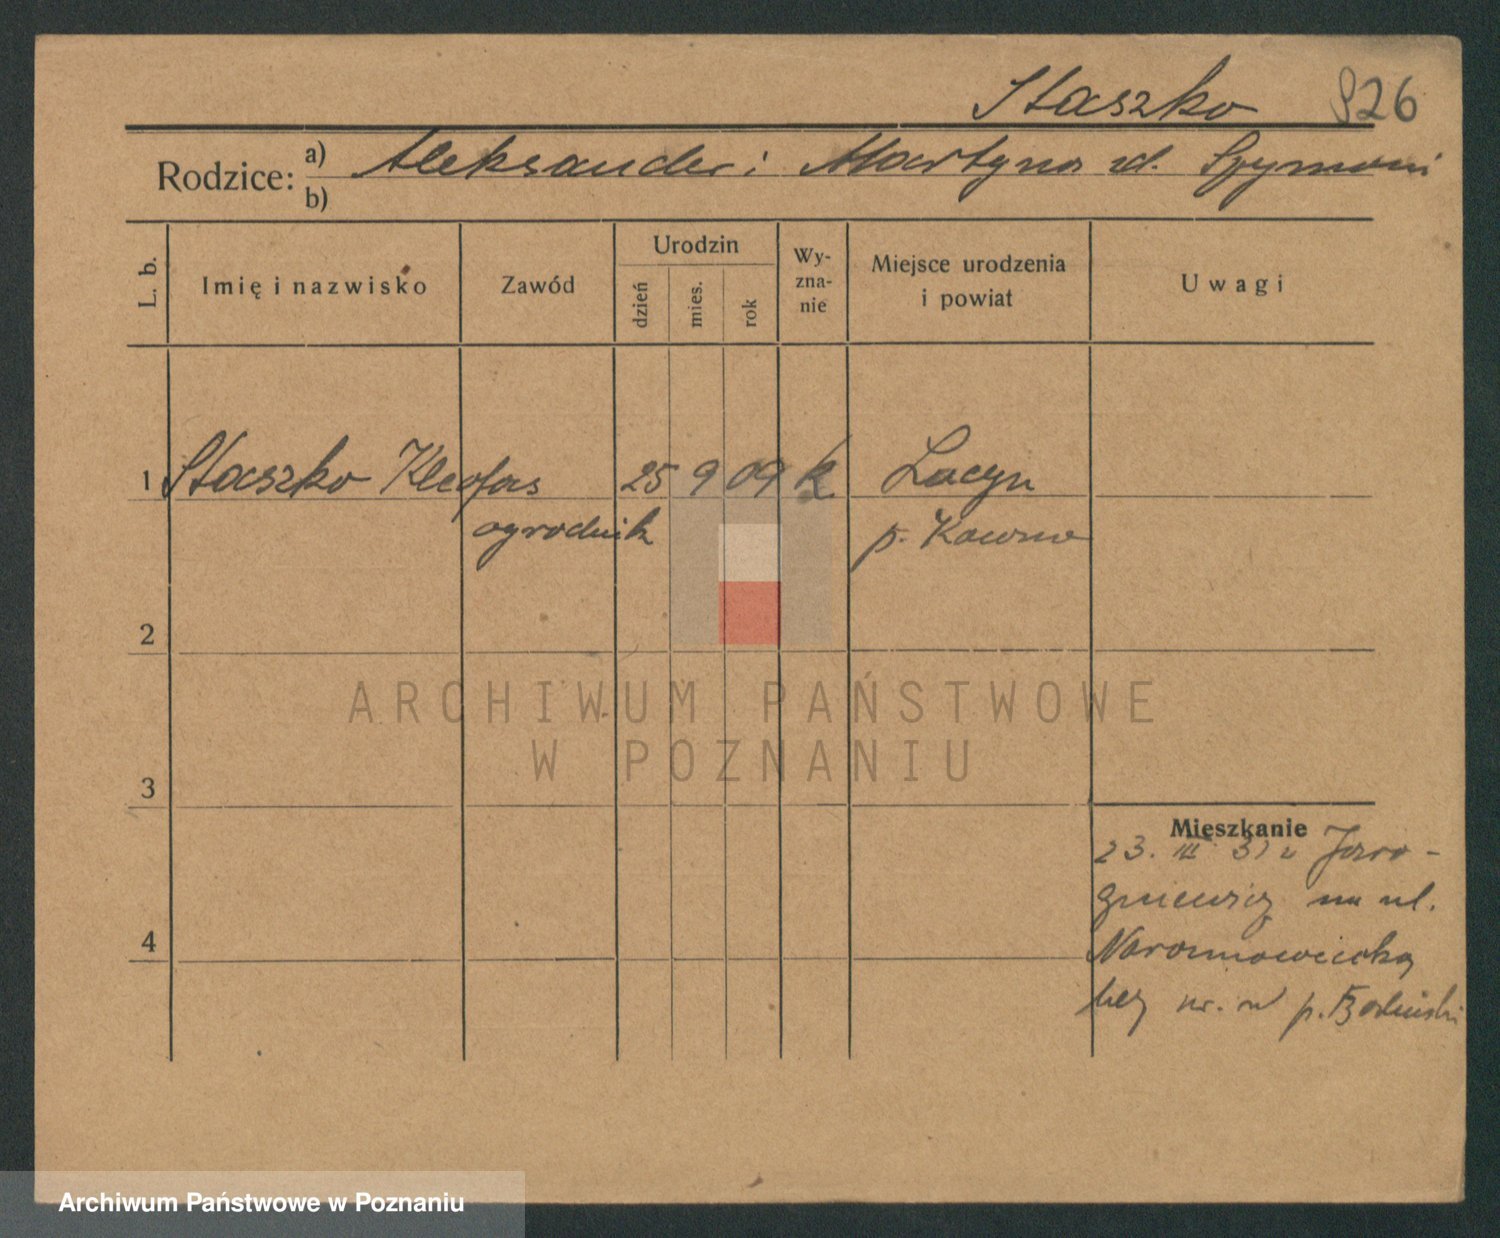 Staszko 926
Rodzice: a) Aleksander i Martyna zd. Szymoni
b)
L. b. Imię i nazwisko Zawód Urodzin dzień mies. rok Wyznanie Miejsce urodzenia i powiat Uwagi
1 Staszko Kleofas 25 9 09 k Lacyn
ogrodnik p. Kowno
2
ARCHIWUM PAŃSTWOWE
W POZNANIU
3
Mieszkanie
23. III 31 z Jaro-
gniewicz na ul.
4
Naramowicką
bez nr. w p.
Archiwum Państwowe w Poznaniu